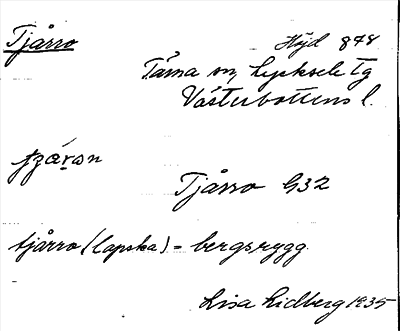 Tjårro
Höjd 878
Tärna sn, Lycksele tg
Västerbottens l.
Tjårro G32
tjårro (lapska) = bergsrygg
Lisa Lidberg 1935